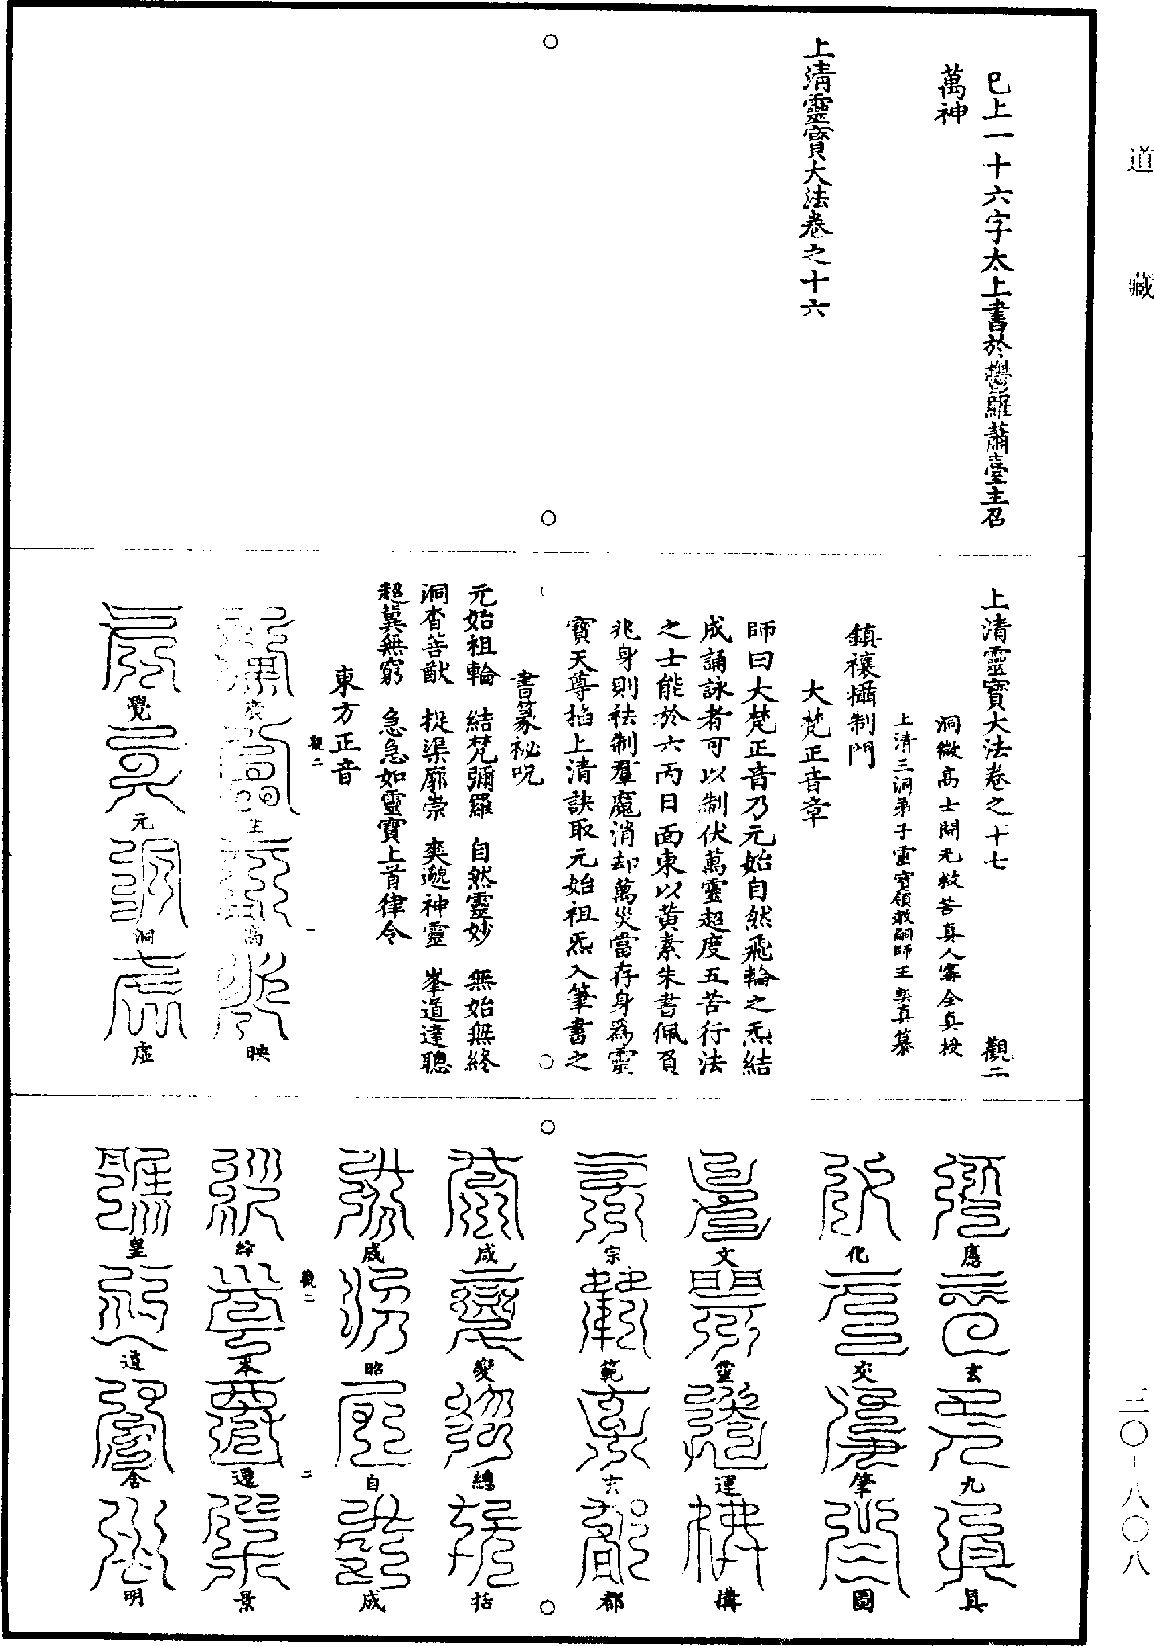 道藏
巳上一十六字太上書於鬱羅蕭臺主召
萬神
上清靈寶大法卷之十六
上清靈寶大法卷之十七 觀二
洞微高士開光救苦真人甯全真授
上清三洞弟子靈寶領教嗣師王契真纂
鎮禳攝制門
大梵正音章
師曰大梵正音乃元始自然飛輪之炁結
成誦詠者可以制伏萬靈超度五苦行法
之士能於六丙日面東以黃素朱書佩頁
兆身則祛制羣魔消却萬災當存身為靈
寶天尊掐上清訣取元始祖炁入筆書之
書篆秘呪
元始祖輪 結梵彌羅 自然靈妙 無始無終
洞杳菩猷 捉渠廓崇 奭邈神靈 峯道達聰
超冀無窮 急急如靈寶上首律令
東方正音
觀二
一
主
高
映
覺
元
洞
虛
應
玄
九
真
化
交
肇
圖
文
靈
運
構
宗
範
玄
都
咸
變
總
括
咸
昭
自
成
觀二
二
綜
本
還
景
皇
達
含
明
三〇-八〇八